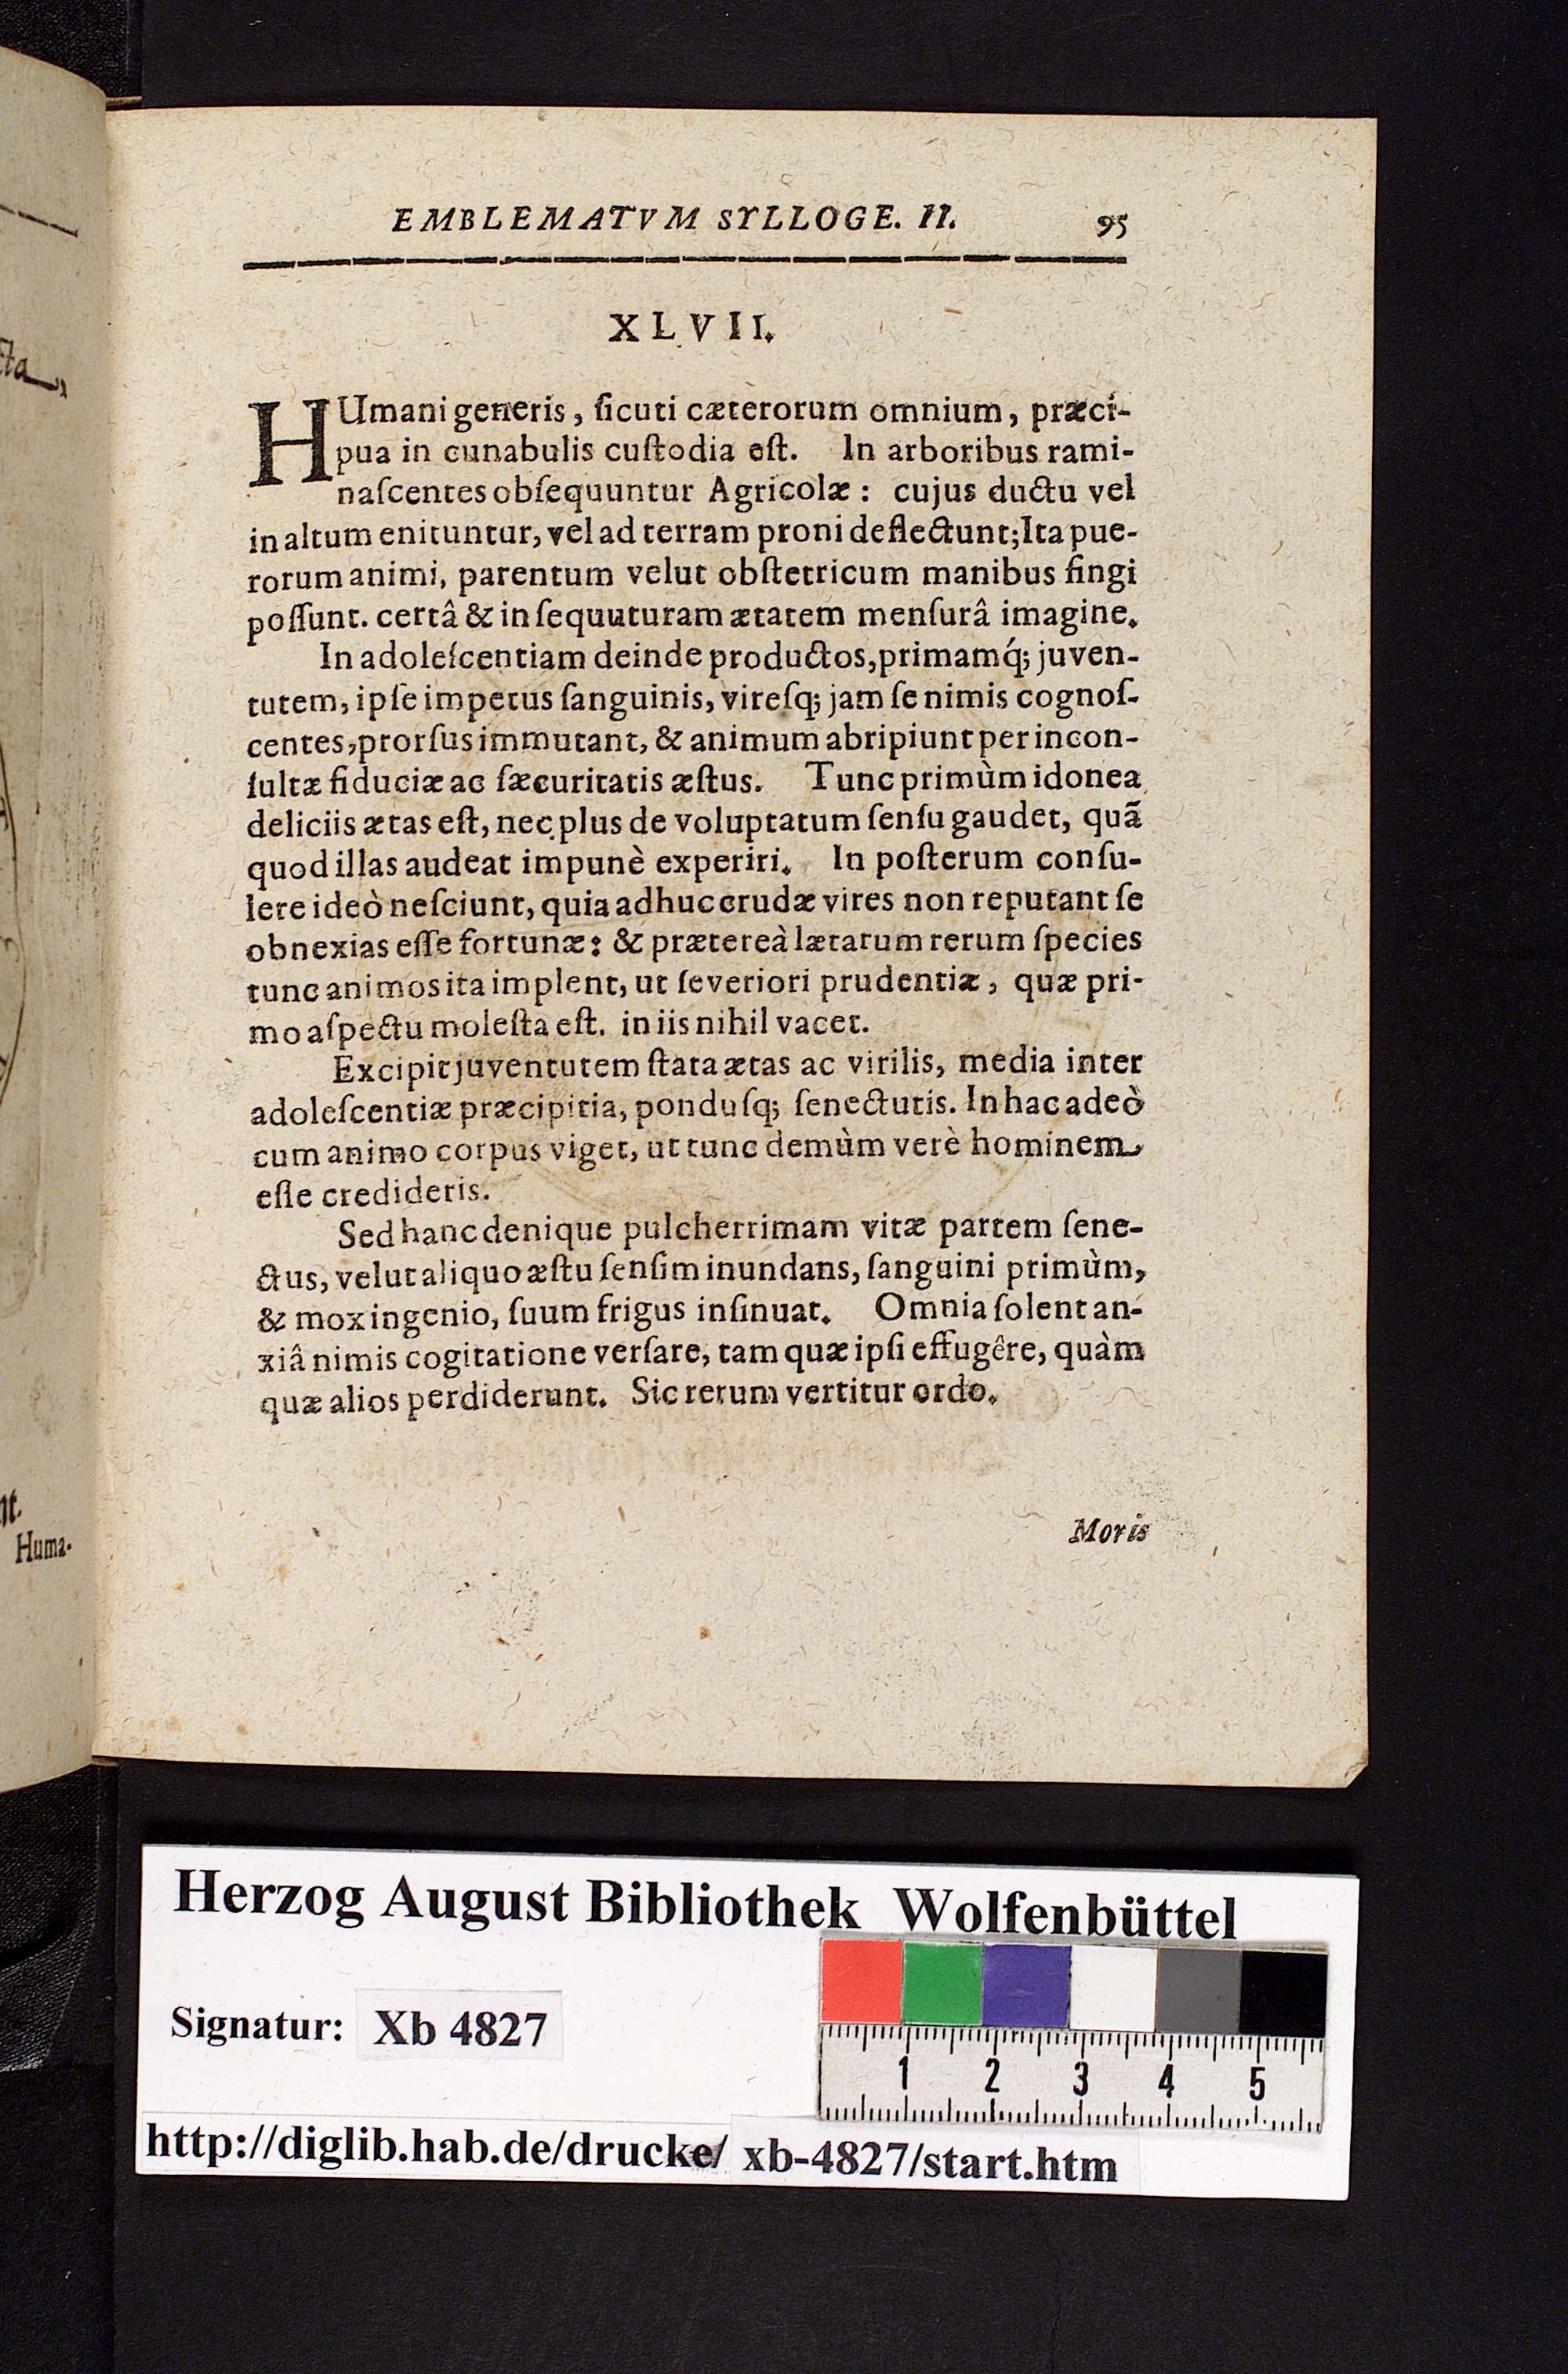 cta,
nt.
Huma-
EMBLEMATVM SYLLOGE. II. 95
XLVII.
HUmani generis, ſicuti cæterorum omnium, præci-
pua in cunabulis cuſtodia eſt. In arboribus rami-
naſcentes obſequuntur Agricolæ: cujus ductu vel
in altum enituntur, vel ad terram proni deflectunt; Ita pue-
rorum animi, parentum velut obſtetricum manibus fingi
poſſunt. certâ & in ſequuturam ætatem menſurâ imagine.
In adoleſcentiam deinde productos, primamq́; juven-
tutem, ipſe impetus ſanguinis, vireſq; jam ſe nimis cognoſ-
centes, prorſus immutant, & animum abripiunt per incon-
ſultæ fiduciæ ac ſæcuritatis æſtus. Tunc primùm idonea
deliciis ætas eſt, nec plus de voluptatum ſenſu gaudet, quã
quod illas audeat impunè experiri. In poſterum conſu-
lere ideò neſciunt, quia adhuc crudæ vires non reputant ſe
obnexias eſſe fortunæ: & prætereà lætarum rerum ſpecies
tunc animos ita implent, ut ſeveriori prudentiæ, quæ pri-
mo aſpectu moleſta eſt. in iis nihil vacet.
Excipit juventutem ſtata ætas ac virilis, media inter
adoleſcentiæ præcipitia, ponduſq; ſenectutis. In hac adeò
cum animo corpus viget, ut tunc demùm verè hominem
eſſe credideris.
Sed hanc denique pulcherrimam vitæ partem ſene-
ctus, velut aliquo æſtu ſenſim inundans, ſanguini primùm,
& mox ingenio, ſuum frigus inſinuat. Omnia ſolent an-
xiâ nimis cogitatione verſare, tam quæ ipſi effugêre, quàm
quæ alios perdiderunt. Sic rerum vertitur ordo.
Moris
Herzog August Bibliothek Wolfenbüttel
Signatur: Xb 4827
1 2 3 4 5
http://diglib.hab.de/drucke/ xb-4827/start.htm